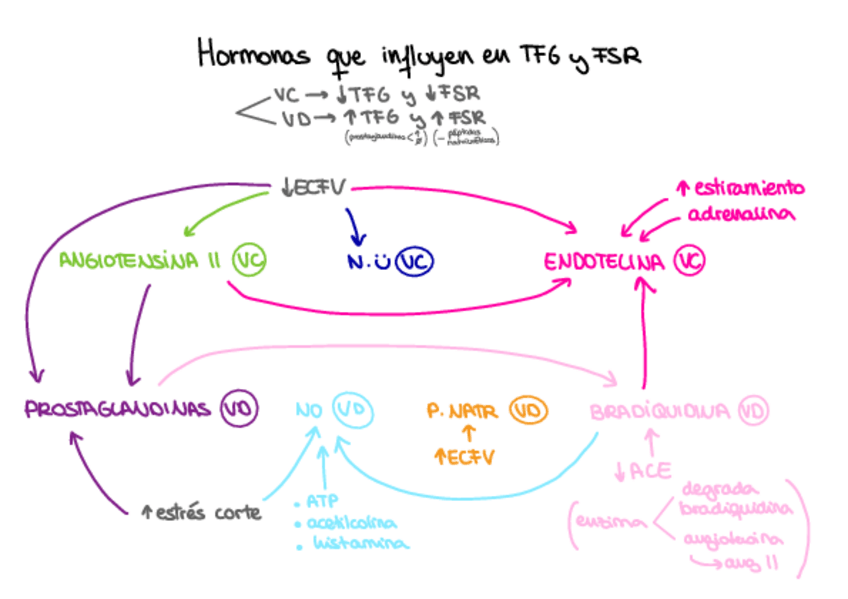 Hormonas que influyen en TFG y FSR
VC → ↓TFG y ↓FSR
VD → ↑TFG y ↑FSR
(prostaglandinas < ↑ ø) (- péptidos natriuréticos)
↓ECFV
↑ estiramiento
adrenalina
ANGIOTENSINA II VC
N.U VC
ENDOTELINA VC
PROSTAGLANDINAS VD
NO VD
P. NATR VD
BRADIQUIDINA VD
↑ECFV
↓ACE
↑ estrés corte
• ATP
• acetilcolina
• histamina
(enzima
degrada
bradiquidina
angiotecina
→ ang II)